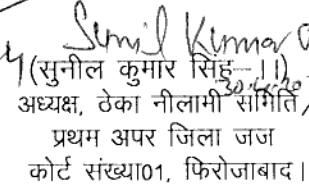 Sunil Kumar
(सुनील कुमार सिंह-II)
अध्यक्ष, ठेका नीलामी समिति/
प्रथम अपर जिला जज
कोर्ट संख्या01, फिरोजाबाद।